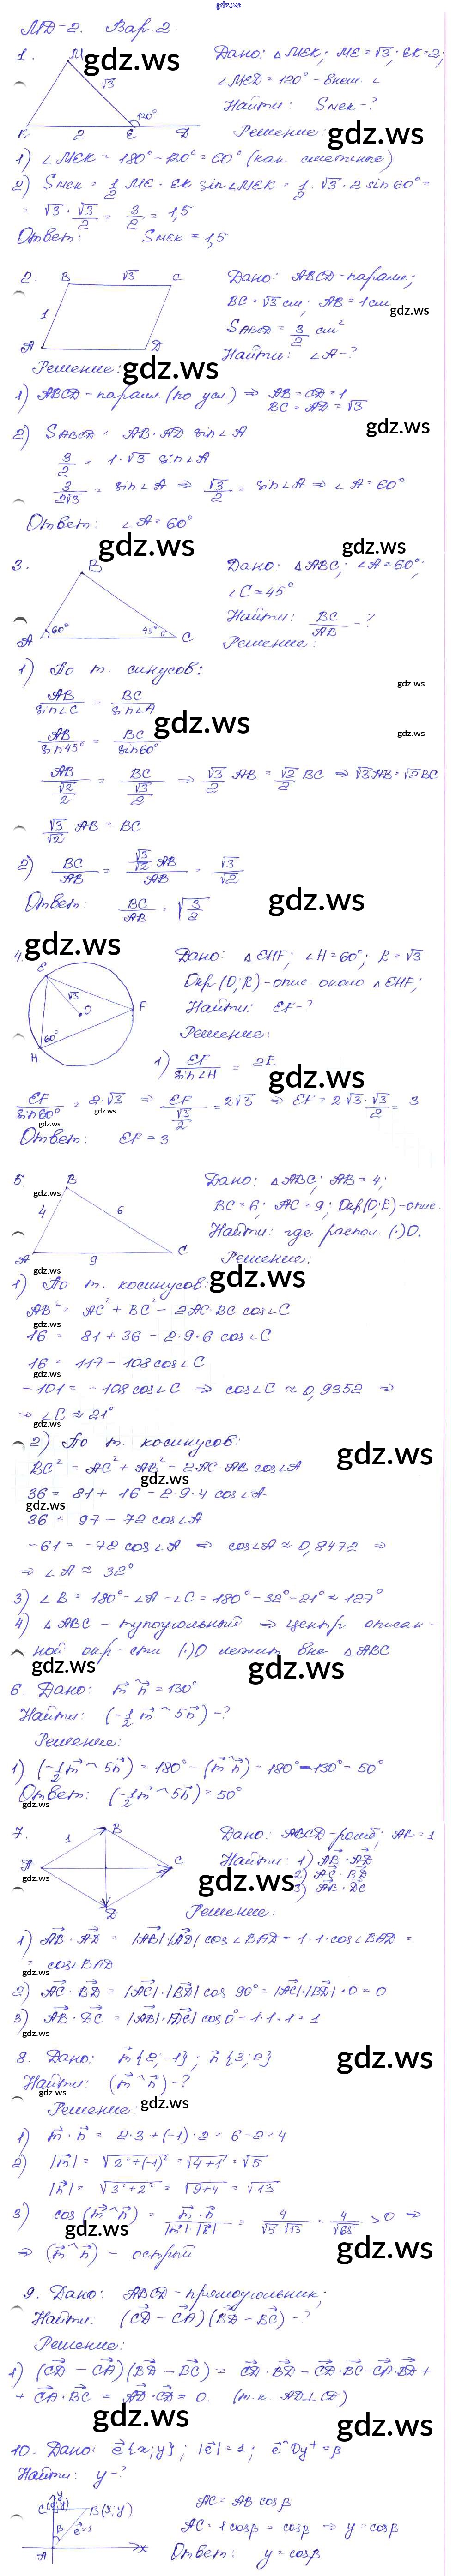 gdz.ws
МД-2. Вар. 2.
1. Дано: △MEK; ME = √3; EK = 2;
∠MED = 120° – внеш. ∠
Найти: Sмек – ?
Решение:
M √3 120° K 2 E D
1) ∠MEK = 180° – 120° = 60° (как смежные)
2) Sмек = 1/2 ME · EK sin∠MEK = 1/2 · √3 · 2 sin 60° =
= √3 · √3/2 = 3/2 = 1,5
Ответ: Sмек = 1,5
2. Дано: ABCD – парал.;
BC = √3 см; AB = 1 см
S ABCD = 3/2 см²
Найти: ∠A – ?
B √3 C 1 A D
Решение:
1) ABCD – парал. (по усл.) ⇒ AB = CD = 1
BC = AD = √3
2) S ABCD = AB · AD sin∠A
3/2 = 1 · √3 sin∠A
3/2√3 = sin∠A ⇒ √3/2 = sin∠A ⇒ ∠A = 60°
Ответ: ∠A = 60°
3. Дано: △ABC; ∠A = 60°;
∠C = 45°
Найти: BC/AB – ?
Решение:
B A 60° 45° C
1) По т. синусов:
AB/sin∠C = BC/sin∠A
AB/sin45° = BC/sin60°
AB/(√2/2) = BC/(√3/2) ⇒ √3/2 AB = √2/2 BC ⇒ √3AB = √2BC
√3/√2 AB = BC
2) BC/AB = (√3/√2 AB)/AB = √3/√2
Ответ: BC/AB = √(3/2)
4. Дано: △EHF; ∠H = 60°; R = √3
Окр(O;R) – опис около △EHF;
Найти: EF – ?
Решение:
E √3 O F 60° H
1) EF/sin∠H = 2R
EF/sin60° = 2·√3 ⇒ EF/(√3/2) = 2√3 ⇒ EF = 2√3·√3/2 = 3
Ответ: EF = 3
5. Дано: △ABC; AB = 4;
BC = 6; AC = 9; Окр(O;R) – опис.
Найти: где распол. (·)O.
Решение:
B 4 6 A 9 C
1) По т. косинусов:
AB² = AC² + BC² – 2AC·BC cos∠C
16 = 81 + 36 – 2·9·6 cos∠C
16 = 117 – 108cos∠C
–101 = –108cos∠C ⇒ cos∠C ≈ 0,9352 ⇒
⇒ ∠C ≈ 21°
2) По т. косинусов:
BC² = AC² + AB² – 2AC AB cos∠A
36 = 81 + 16 – 2·9·4 cos∠A
36 = 97 – 72 cos∠A
–61 = –72 cos∠A ⇒ cos∠A ≈ 0,8472 ⇒
⇒ ∠A ≈ 32°
3) ∠B = 180° – ∠A – ∠C = 180° – 32° – 21° ≈ 127°
4) △ABC – тупоугольный ⇒ центр описан-
ной окр-сти (·)O лежит вне △ABC
6. Дано: m⃗^n⃗ = 130°
Найти: (–1/2 m⃗ ^ 5n⃗) – ?
Решение:
1) (–1/2 m⃗ ^ 5n⃗) = 180° – (m⃗^n⃗) = 180° – 130° = 50°
Ответ: (–1/2 m⃗ ^ 5n⃗) = 50°
7. Дано: ABCD – ромб; AB = 1
Найти: 1) AB⃗ · AD⃗
2) AC⃗ · BD⃗
3) AB⃗ · DC⃗
Решение:
1 B A C D
1) AB⃗ · AD⃗ = |AB⃗| |AD⃗| cos∠BAD = 1·1·cos∠BAD =
= cos∠BAD
2) AC⃗ · BD⃗ = |AC⃗|·|BD⃗| cos 90° = |AC⃗|·|BD⃗|·0 = 0
3) AB⃗ · DC⃗ = |AB⃗|·|DC⃗| cos0° = 1·1·1 = 1
8. Дано: m⃗{2;–1}; n⃗{3;2}
Найти: (m⃗^n⃗) – ?
Решение:
1) m⃗ · n⃗ = 2·3 + (–1)·2 = 6 – 2 = 4
2) |m⃗| = √(2²+(–1)²) = √(4+1) = √5
|n⃗| = √(3²+2²) = √(9+4) = √13
3) cos(m⃗^n⃗) = m⃗·n⃗/|m⃗|·|n⃗| = 4/√5·√13 = 4/√65 > 0 ⇒
⇒ (m⃗^n⃗) – острый
9. Дано: ABCD – прямоугольник;
Найти: (CD⃗ – CA⃗)(BD⃗ – BC⃗) – ?
Решение:
1) (CD⃗ – CA⃗)(BD⃗ – BC⃗) = CD⃗·BD⃗ – CD⃗·BC⃗ – CA⃗·BD⃗ +
+ CA⃗·BC⃗ = AD⃗·CD⃗ = 0. (т.к. AD⊥CD)
10. Дано: e⃗{x;y}; |e⃗| = 1; e⃗^Oy⁺ = β
Найти: y – ?
AC = AB cosβ
AC = 1cosβ = cosβ ⇒ y = cosβ
Ответ: y = cosβ